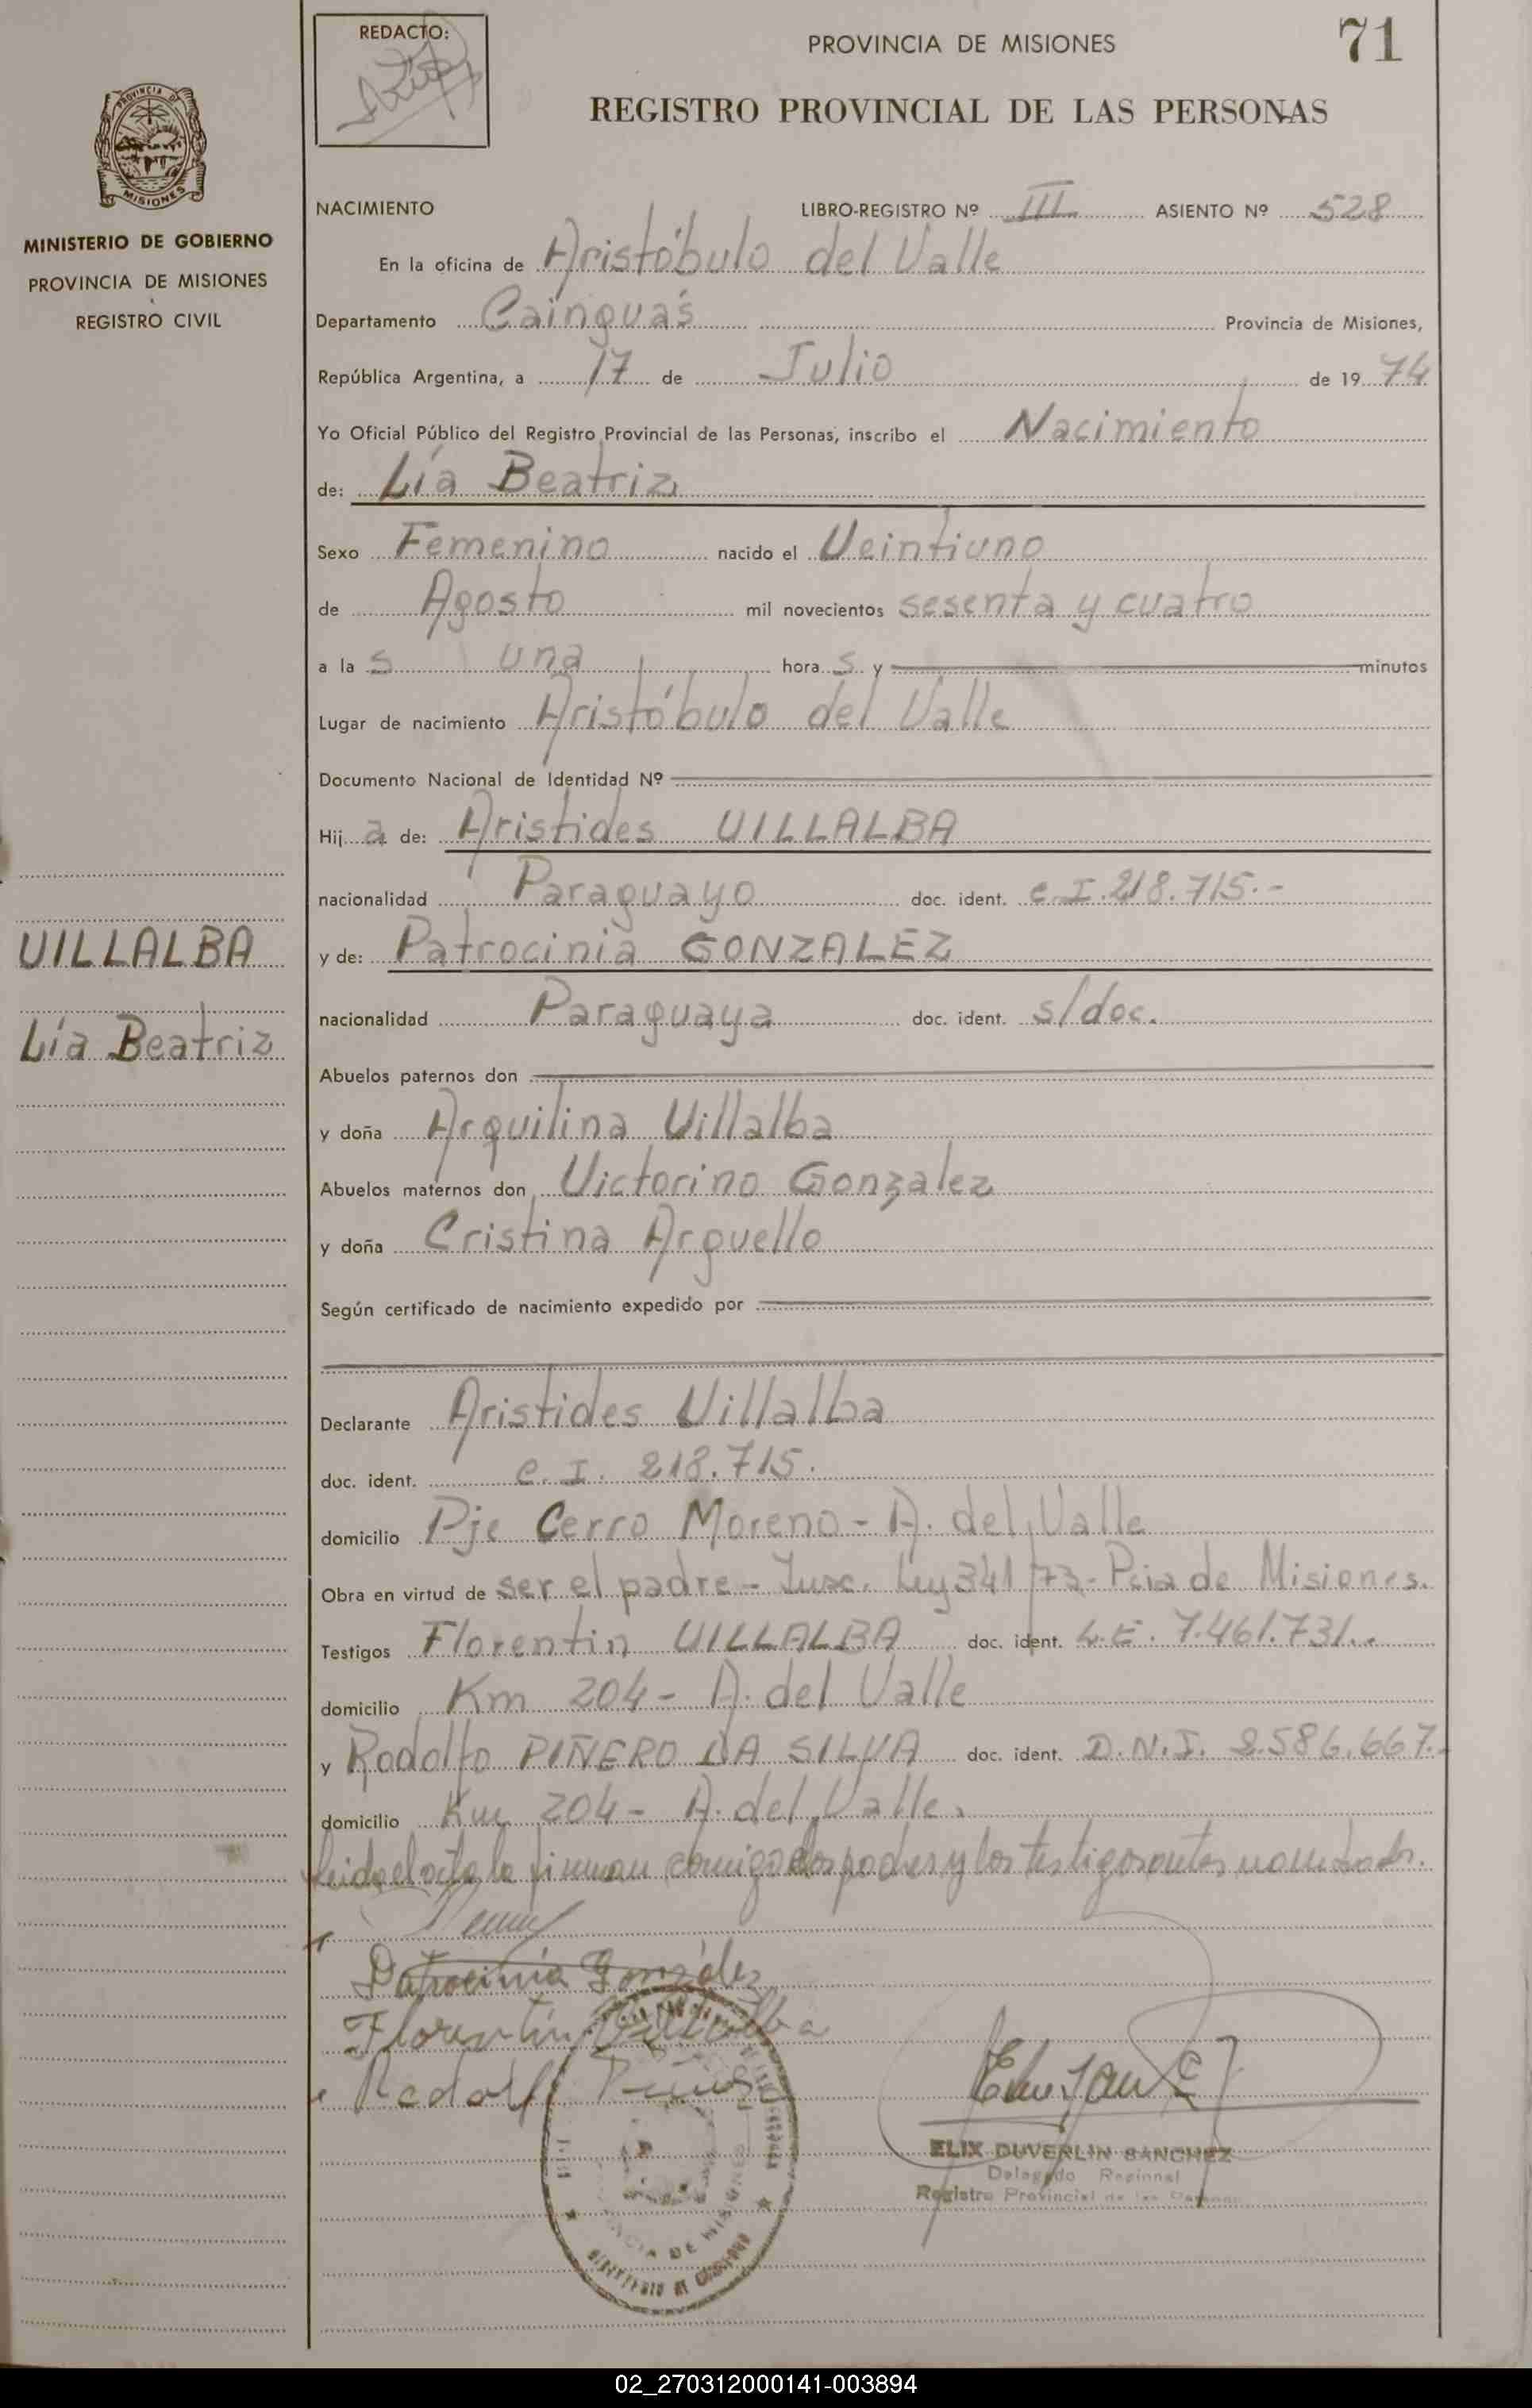 REDACTO:
PROVINCIA DE MISIONES
71
REGISTRO PROVINCIAL DE LAS PERSONAS
PROVINCIA DE
MISIONES
MINISTERIO DE GOBIERNO
PROVINCIA DE MISIONES
REGISTRO CIVIL
NACIMIENTO LIBRO-REGISTRO Nº III ASIENTO Nº 528
En la oficina de Aristóbulo del Valle
Departamento Cainguás Provincia de Misiones,
República Argentina, a 17 de Julio de 1974
Yo Oficial Público del Registro Provincial de las Personas, inscribo el Nacimiento
de: Lía Beatriz
Sexo Femenino nacido el Veintiuno
de Agosto mil novecientos sesenta y cuatro
a la s una hora s y minutos
Lugar de nacimiento Aristóbulo del Valle
Documento Nacional de Identidad Nº
Hij a de: Aristides VILLALBA
nacionalidad Paraguayo doc. ident. C.I. 218.715.-
VILLALBA
Lía Beatriz
y de: Patrocinia GONZALEZ
nacionalidad Paraguaya doc. ident. s/doc.
Abuelos paternos don
y doña Arquilina Villalba
Abuelos maternos don Victorino Gonzalez
y doña Cristina Arguello
Según certificado de nacimiento expedido por
Declarante Aristides Villalba
doc. ident. C.I. 218.715.
domicilio Pje Cerro Moreno - A. del Valle
Obra en virtud de ser el padre - Insc. Ley 341/73 - Pcia de Misiones.
Testigos Florentin VILLALBA doc. ident. L.E. 7.461.731.-
domicilio Km 204 - A. del Valle
y Rodolfo PIÑERO DA SILVA doc. ident. D.N.I. 8.586.667.-
domicilio Km 204 - A. del Valle.
Leida el acta la firman conmigo los padres y los testigos antes nombrados.
Patrocinia González
Florentín Villalba
Rodolfo
ELIX DUVERLIN SANCHEZ
Delegado Regional
Registro Provincial de las Personas
02_270312000141-003894